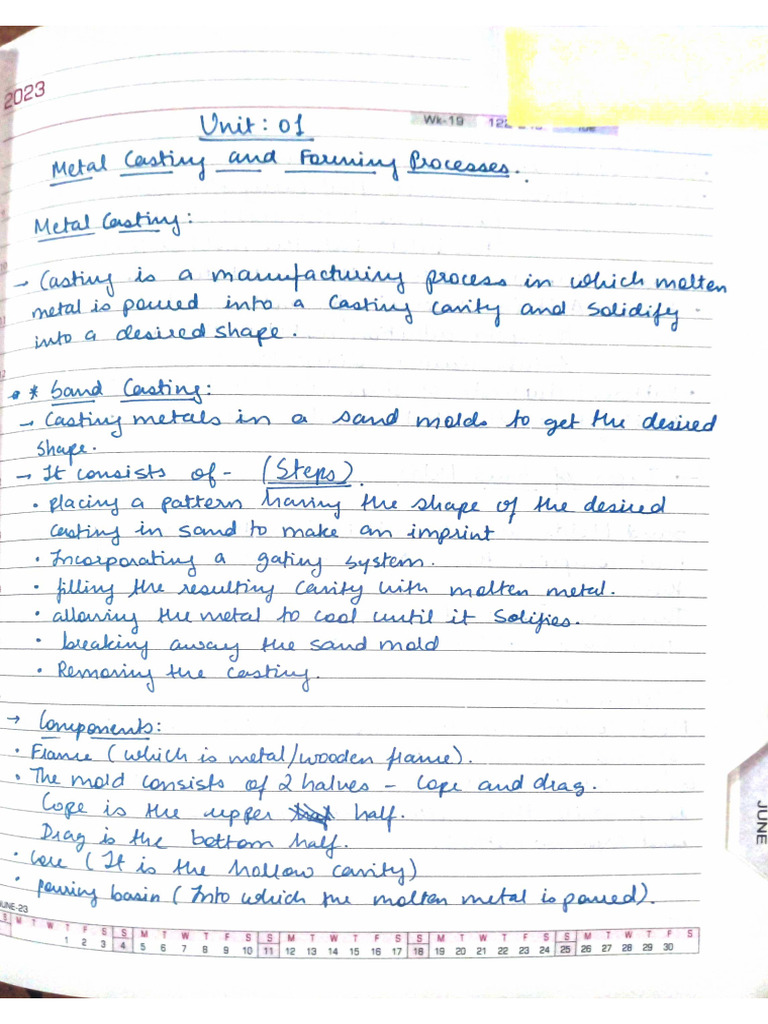 2023
Wk-19 122
Unit: 01
Metal Casting and Forming Processes.
Metal Casting:
→ Casting is a manufacturing process in which molten
metal is poured into a casting cavity and solidify
into a desired shape.
* Sand Casting:
→ Casting metals in a sand molds to get the desired
shape.
→ It consists of - (Steps).
• placing a pattern having the shape of the desired
casting in sand to make an imprint
• Incorporating a gating system.
• filling the resulting cavity with molten metal.
• allowing the metal to cool until it solifies.
• breaking away the sand mold
• Removing the casting.
→ Components:
• Frame (which is metal/wooden frame).
• The mold consists of 2 halves - cope and drag.
Cope is the upper half.
Drag is the bottom half.
• Core (It is the hollow cavity)
• pouring basin (Into which the molten metal is poured).
JUNE
JUNE-23
S M T W T F S S M T W T F S S M T W T F S S M T W T F S S M T W T F S
1 2 3 4 5 6 7 8 9 10 11 12 13 14 15 16 17 18 19 20 21 22 23 24 25 26 27 28 29 30